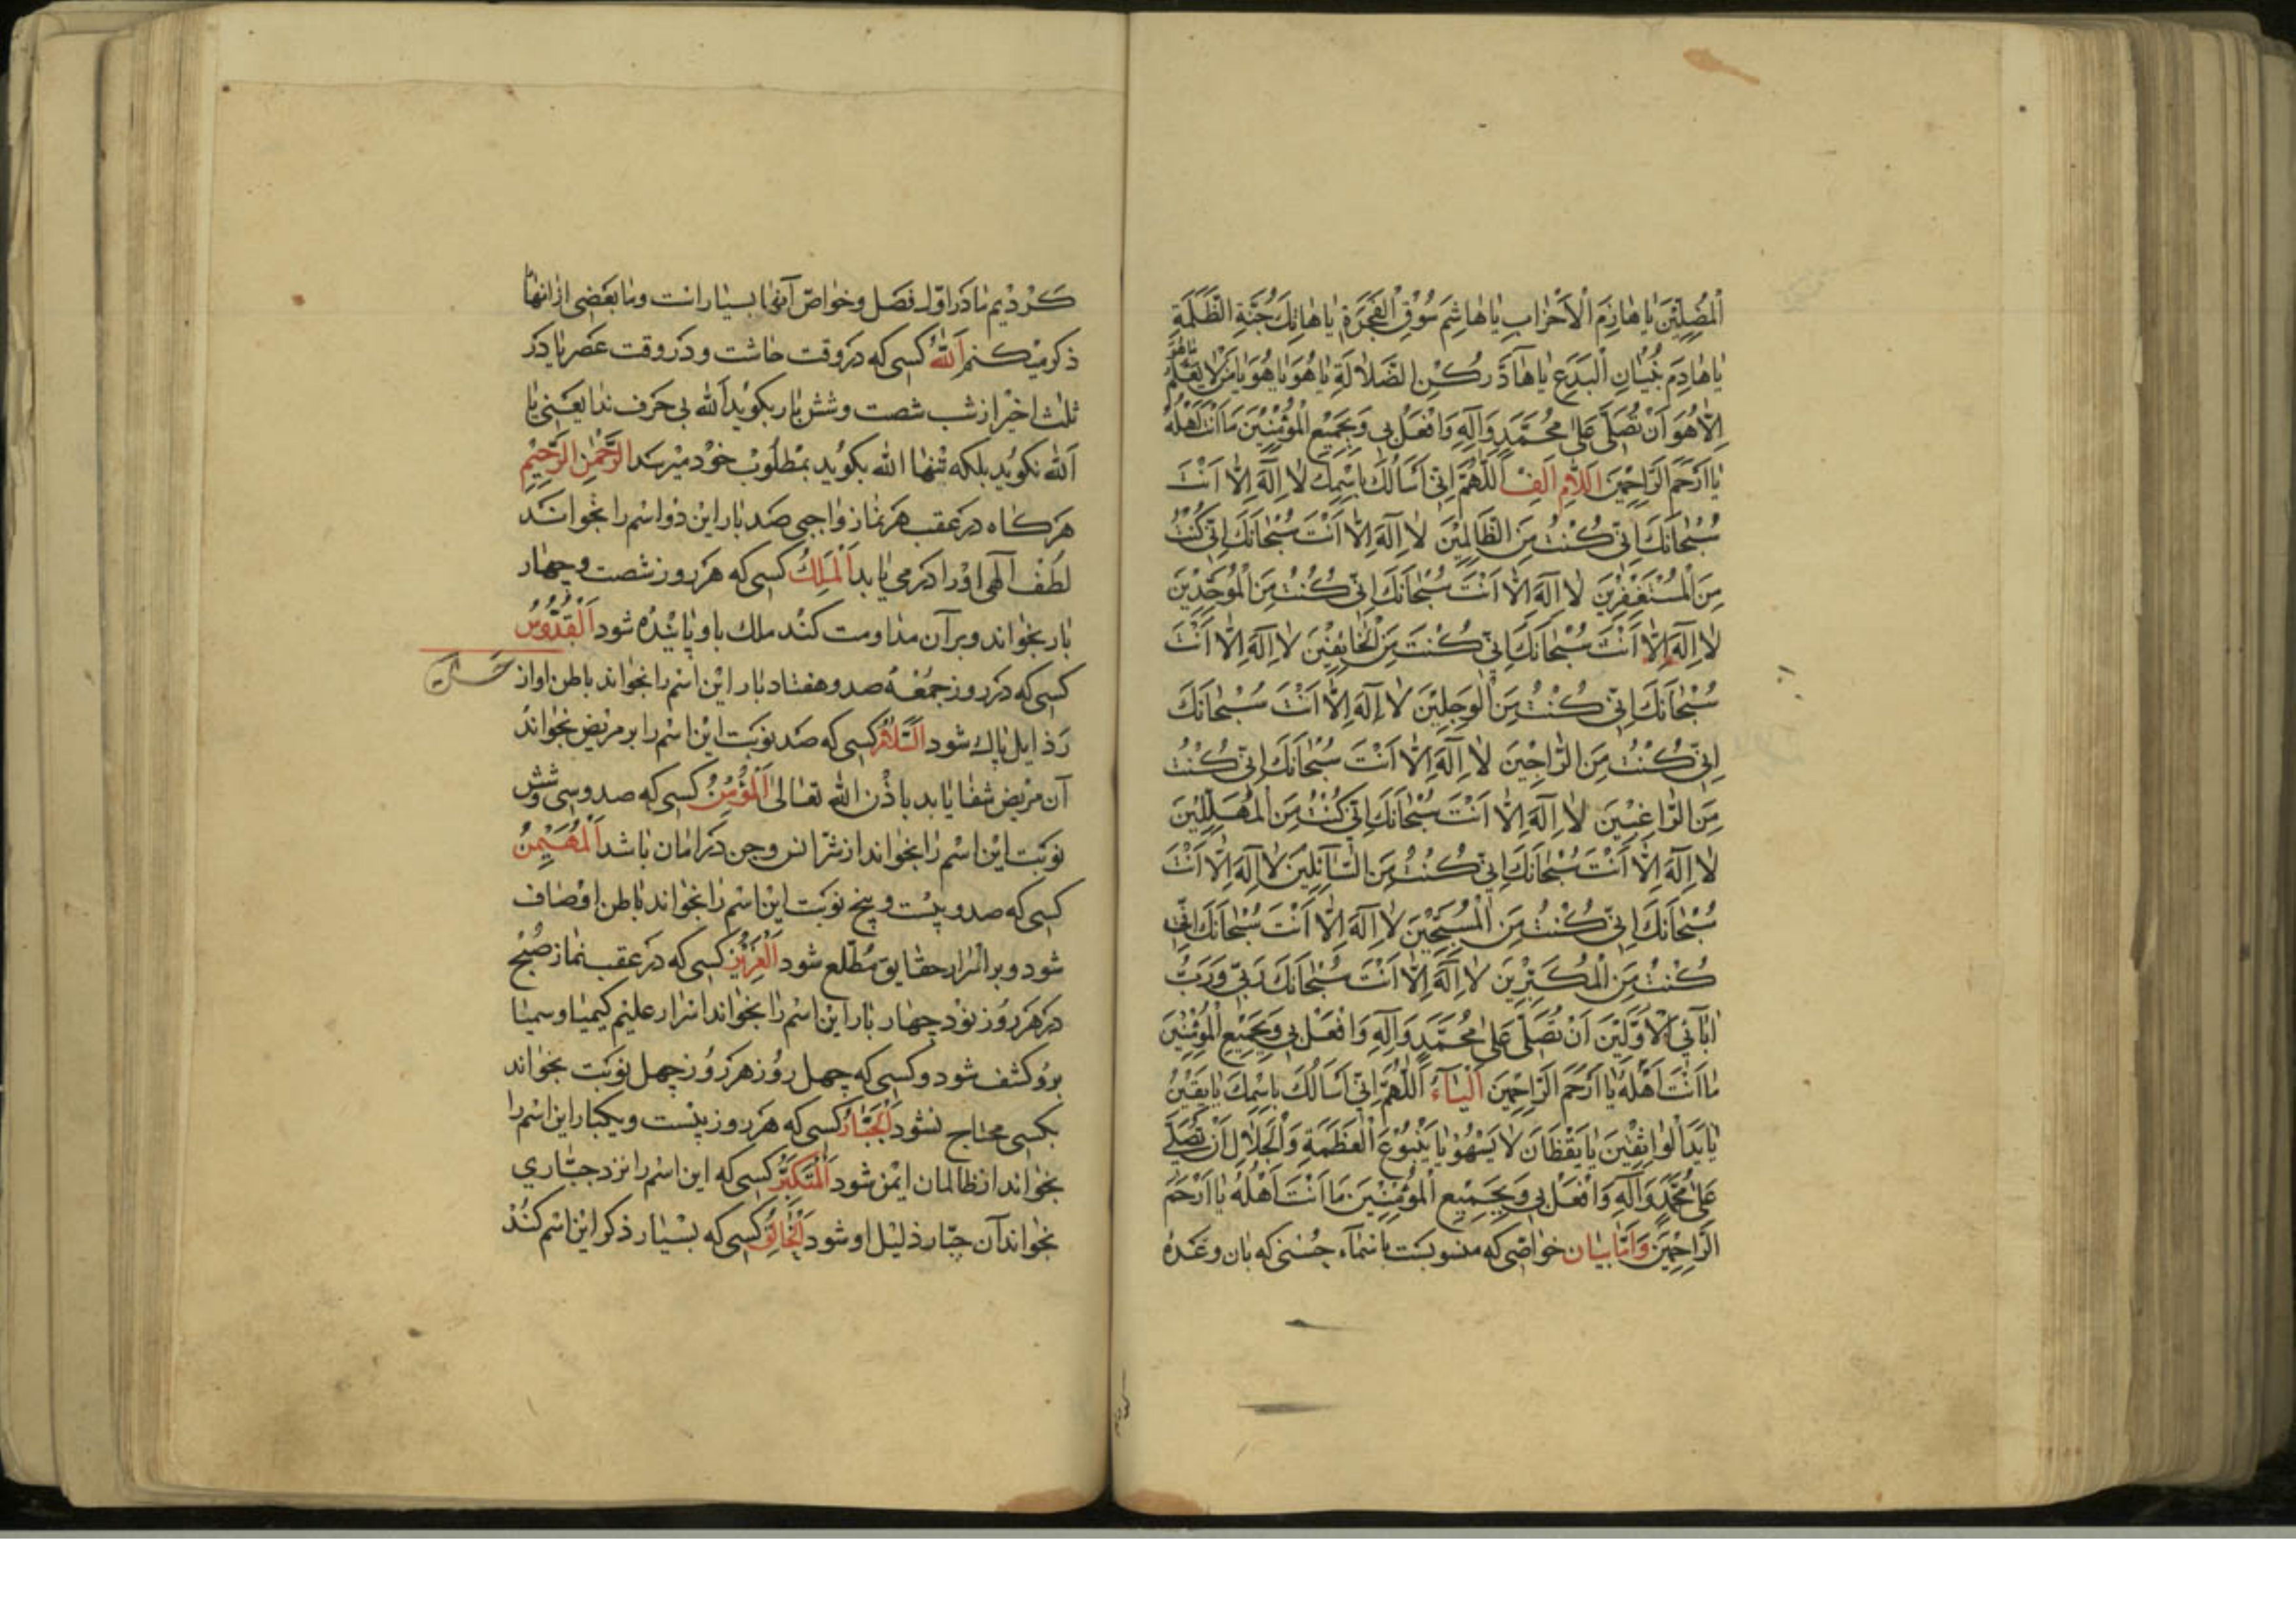 الْمُضِلِّيْنَ يَا هَازِمَ الْاَحْزَابِ يَا هَاشِمَ سُوْقِ الْفَجَرَةِ يَا هَاتِكَ جُنَّةِ الظَّلَمَةِ
يَا هَادِمَ بُنْيَانِ الْبِدَعِ يَا هَادَّ رُكْنِ الضَّلَالَةِ يَا هُوَ يَا هُوَ يَا مَنْ لَا يَعْلَمُ مَا هُوَ
اِلَّا هُوَ اَنْ تُصَلِّىَ عَلىٰ مُحَمَّدٍ وَآلِهِ وَافْعَلْ بِى وَبِجَمِيْعِ الْمُؤْمِنِيْنَ مَا اَنْتَ اَهْلُهُ
يَا اَرْحَمَ الرَّاحِمِيْنَ اَللَّامِ اَلِفْ اَللّٰهُمَّ اِنِّى اَسْاَلُكَ بِاسْمِكَ لَا اِلٰهَ اِلَّا اَنْتَ
سُبْحَانَكَ اِنِّى كُنْتُ مِنَ الظَّالِمِيْنَ لَا اِلٰهَ اِلَّا اَنْتَ سُبْحَانَكَ اِنِّى كُنْتُ
مِنَ الْمُسْتَغْفِرِيْنَ لَا اِلٰهَ اِلَّا اَنْتَ سُبْحَانَكَ اِنِّى كُنْتُ مِنَ الْمُوَحِّدِيْنَ
لَا اِلٰهَ اِلَّا اَنْتَ سُبْحَانَكَ اِنِّى كُنْتُ مِنَ الْخَائِفِيْنَ لَا اِلٰهَ اِلَّا اَنْتَ
سُبْحَانَكَ اِنِّى كُنْتُ مِنَ الْوَجِلِيْنَ لَا اِلٰهَ اِلَّا اَنْتَ سُبْحَانَكَ
اِنِّى كُنْتُ مِنَ الرَّاجِيْنَ لَا اِلٰهَ اِلَّا اَنْتَ سُبْحَانَكَ اِنِّى كُنْتُ
مِنَ الرَّاغِبِيْنَ لَا اِلٰهَ اِلَّا اَنْتَ سُبْحَانَكَ اِنِّى كُنْتُ مِنَ الْمُهَلِّلِيْنَ
لَا اِلٰهَ اِلَّا اَنْتَ سُبْحَانَكَ اِنِّى كُنْتُ مِنَ السَّآئِلِيْنَ لَا اِلٰهَ اِلَّا اَنْتَ
سُبْحَانَكَ اِنِّى كُنْتُ مِنَ الْمُسَبِّحِيْنَ لَا اِلٰهَ اِلَّا اَنْتَ سُبْحَانَكَ اِنِّى
كُنْتُ مِنَ الْمُكَبِّرِيْنَ لَا اِلٰهَ اِلَّا اَنْتَ سُبْحَانَكَ رَبِّى وَرَبُّ
اٰبَآئِىَ الْاَوَّلِيْنَ اَنْ تُصَلِّىَ عَلىٰ مُحَمَّدٍ وَآلِهِ وَافْعَلْ بِى وَبِجَمِيْعِ الْمُؤْمِنِيْنَ
مَا اَنْتَ اَهْلُهُ يَا اَرْحَمَ الرَّاحِمِيْنَ اَلْيَآءُ اَللّٰهُمَّ اِنِّى اَسْاَلُكَ بِاسْمِكَ يَا يَقِيْنُ
يَا يَدَ الْوَاثِقِيْنَ يَا يَقْظَانَ لَا يَسْهُوْ يَا يَنْبُوْعَ الْعَظَمَةِ وَالْجَلَالِ اَنْ تُصَلِّىَ
عَلىٰ مُحَمَّدٍ وَآلِهِ وَافْعَلْ بِى وَبِجَمِيْعِ الْمُؤْمِنِيْنَ مَا اَنْتَ اَهْلُهُ يَا اَرْحَمَ
الرَّاحِمِيْنَ وَاَمَّا بيان خواصى كه منسوبست باسماء حسنى كه بان وعده
كرديم ما در اول فصل وخواص آنها بسيار است وما بعضى از انها
ذكر ميكنم اَللّٰهُ كسى كه در وقت چاشت ودر وقت عصر يا در
ثلث اخير از شب شصت وشش بار بكويد الله بى حرف ندا يعنى يا
الله نكويد بلكه تنها الله بكويد بمطلوب خود ميرسد اَلرَّحْمٰنِ الرَّحِيْمِ
هر كاه در عقب هر نماز واجبى صد بار اين دو اسم را بخوانند
لطف الهى او را در مى يابد اَلْمَلِكُ كسى كه هر روز شصت وچهار
بار بخواند وبر آن مداومت كند ملك باو پاينده شود اَلْقُدُّوْسُ
كسى كه در روز جمعه صد وهفتاد بار اين اسم را بخواند باطن او از
رذايل پاك شود اَلسَّلَامُ كسى كه صد نوبت اين اسم را بر مريض بخواند
آن مريض شفا يابد باذن الله تعالى اَلْمُؤْمِنُ كسى كه صد وسى وشش
نوبت اين اسم را بخواند از شر انس وجن در امان باشد اَلْمُهَيْمِنُ
كسى كه صد وبيست وپنج نوبت اين اسم را بخواند باطن او صاف
شود وبر اسرار حقايق مطلع شود اَلْعَزِيْزُ كسى كه در عقب نماز صبح
در هر روز نود چهار بار اين اسم را بخواند اسرار عليم كيميا وسيميا
برو كشف شود وكسى كه چهل روز هر روز چهل نوبت بخواند
بكسى محتاج نشود اَلْجَبَّارُ كسى كه هر روز بيست ويكبار اين اسم را
بخواند از ظالمان ايمن شود اَلْمُتَكَبِّرُ كسى كه اين اسم را نزد جبارى
بخواند آن جبار ذليل او شود اَلْخَالِقُ كسى كه بسيار ذكر اين اسم كند